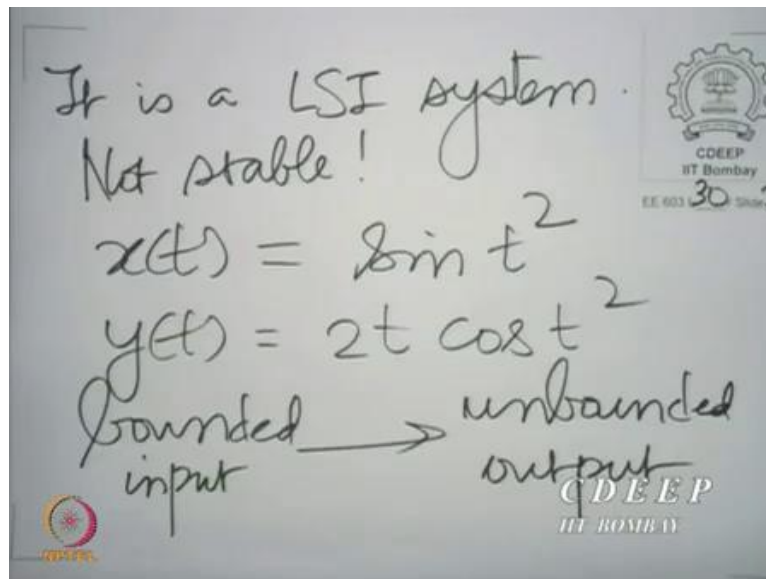 It is a LSI system.
Not stable!
x(t) = sin t²
y(t) = 2t cos t²
bounded → unbounded
input output
CDEEP
IIT Bombay
EE 603 30 Slide
CDEEP
IIT BOMBAY
NPTEL